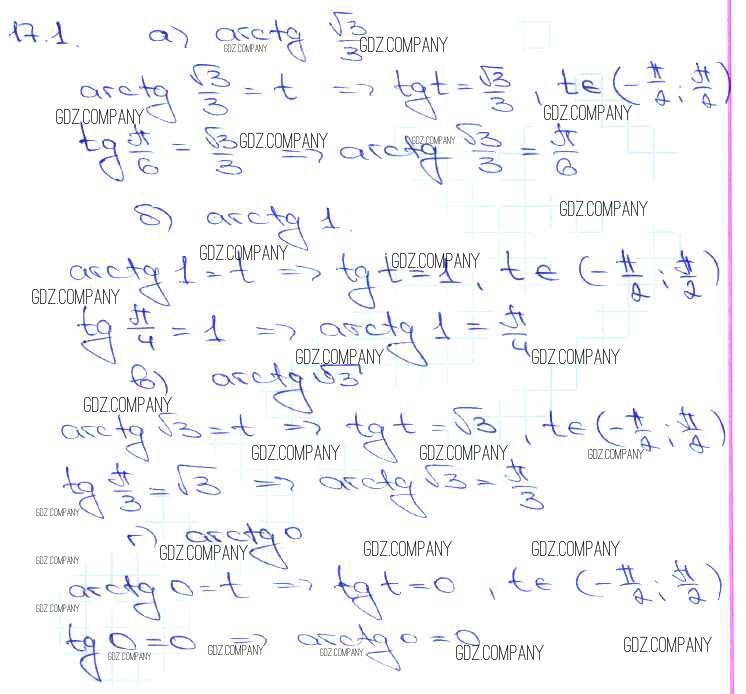 17.1. а) arctg √3/3
GDZ.COMPANY GDZ.COMPANY
arctg √3/3 = t => tg t = √3/3, t∈(-π/2; π/2)
GDZ.COMPANY GDZ.COMPANY
tg π/6 = √3/3 => arctg √3/3 = π/6
GDZ.COMPANY GDZ.COMPANY
б) arctg 1.
GDZ.COMPANY
GDZ.COMPANY GDZ.COMPANY
arctg 1 = t => tg t = 1, t∈(-π/2; π/2)
GDZ.COMPANY
tg π/4 = 1 => arctg 1 = π/4
GDZ.COMPANY GDZ.COMPANY
в) arctg √3
GDZ.COMPANY
arctg √3 = t => tg t = √3, t∈(-π/2; π/2)
GDZ.COMPANY GDZ.COMPANY GDZ.COMPANY
tg π/3 = √3 => arctg √3 = π/3
GDZ.COMPANY
г) arctg 0
GDZ.COMPANY GDZ.COMPANY GDZ.COMPANY
GDZ.COMPANY
arctg 0 = t => tg t = 0, t∈(-π/2; π/2)
GDZ.COMPANY
tg 0 = 0 => arctg 0 = 0
GDZ.COMPANY GDZ.COMPANY GDZ.COMPANY GDZ.COMPANY GDZ.COMPANY